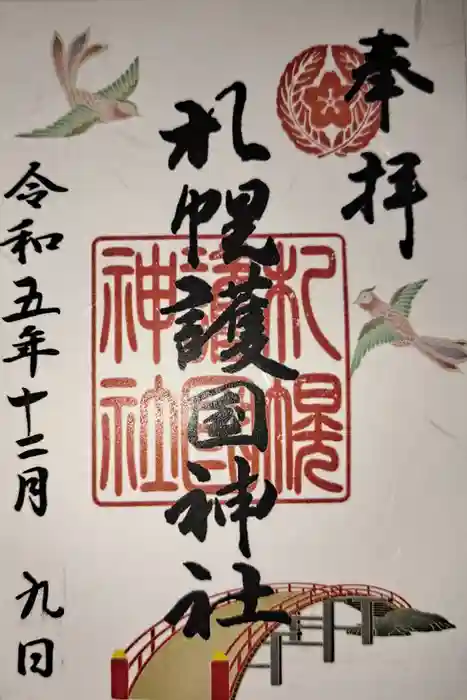 奉拝
札幌護国神社
札幌
護国
神社
令和五年十二月 九日